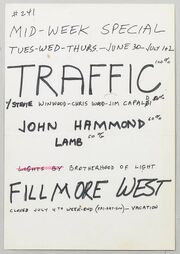 #241
MID-WEEK SPECIAL
TUES-WED-THURS—JUNE 30—JULY 1+2
100%
TRAFFIC
STEVE WINWOOD-CHRIS WOOD-JIM CAPALDI
JOHN HAMMOND 60%
LAMB 50%
LIGHTS BY BROTHERHOOD OF LIGHT
FILLMORE WEST
CLOSED JULY 4TH WEEK-END (FRI-SAT-SUN) — VACATION